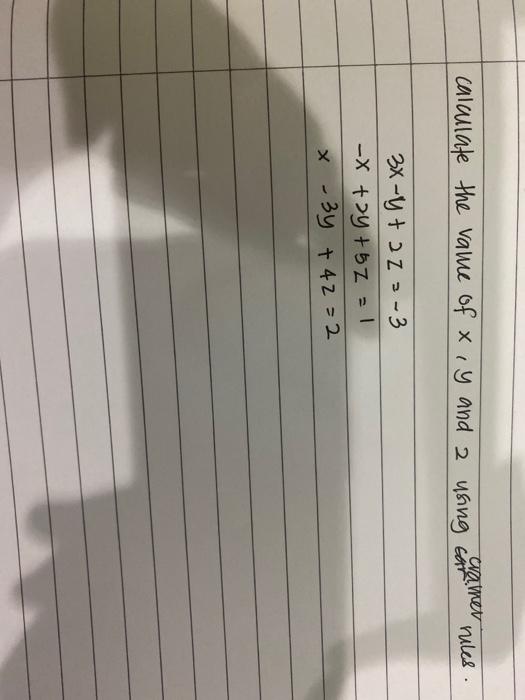 calculate the value of x, y and z using cramer rules.
3x - y + 2z = -3
-x + 2y + 5z = 1
x - 3y + 4z = 2